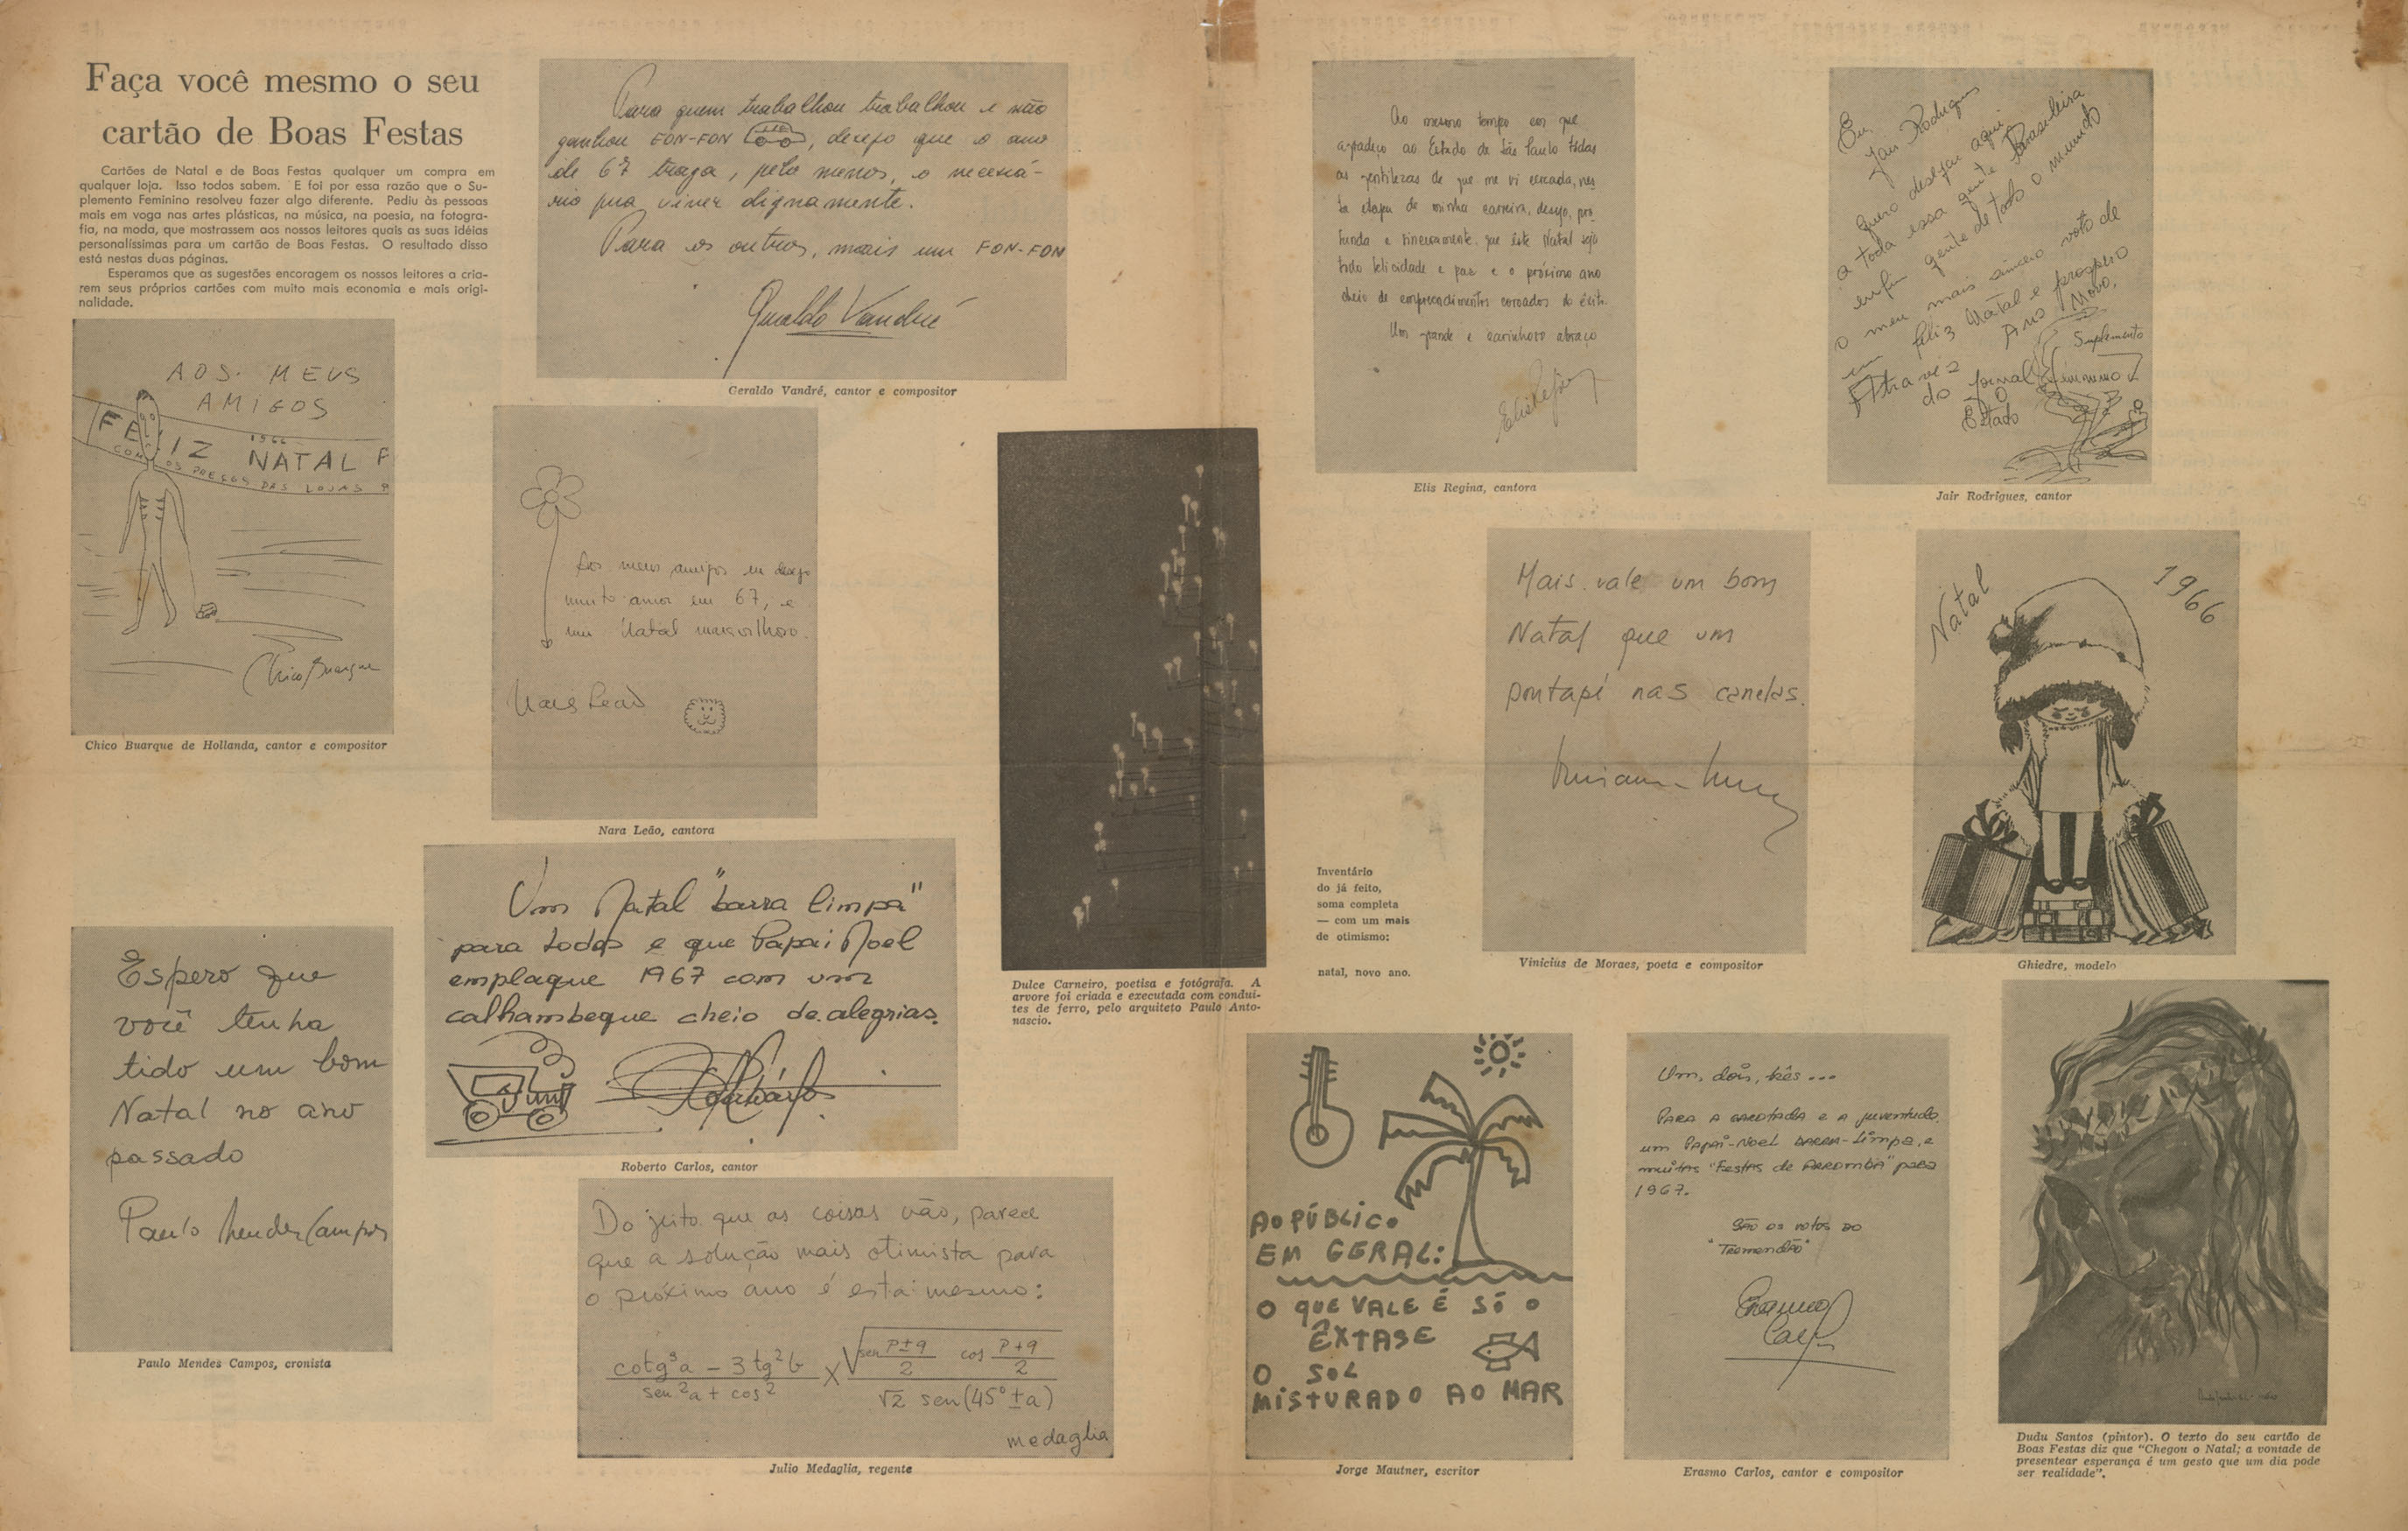 Faça você mesmo o seu
cartão de Boas Festas
Cartões de Natal e de Boas Festas qualquer um compra em
qualquer loja. Isso todos sabem. E foi por essa razão que o Su-
plemento Feminino resolveu fazer algo diferente. Pediu às pessoas
mais em voga nas artes plásticas, na música, na poesia, na fotogra-
fia, na moda, que mostrassem aos nossos leitores quais as suas idéias
personalíssimas para um cartão de Boas Festas. O resultado disso
está nestas duas páginas.
Esperamos que as sugestões encoragem os nossos leitores a cria-
rem seus próprios cartões com muito mais economia e mais origi-
nalidade.
AOS MEUS
AMIGOS
1966
FELIZ NATAL F
COM OS PREÇOS DAS LOJAS P
Chico Buarque
Chico Buarque de Hollanda, cantor e compositor
Para quem trabalhou trabalhou e não
ganhou FON-FON, desejo que o ano
de 67 traga, pelo menos, o necessá-
rio pra viver dignamente.
Para os outros, mais um FON-FON
Geraldo Vandré
Geraldo Vandré, cantor e compositor
Aos meus amigos eu desejo
muito amor em 67, e
um Natal maravilhoso.
Nara Leão
Nara Leão, cantora
Espero que
você tenha
tido um bom
Natal no ano
passado
Paulo Mendes Campos
Paulo Mendes Campos, cronista
Um Natal "barra limpa"
para todos e que Papai Noel
emplaque 1967 com um
calhambeque cheio de alegrias.
Roberto Carlos
Roberto Carlos, cantor
Do jeito que as coisas vão, parece
que a solução mais otimista para
o próximo ano é esta mesmo:
cotg³a − 3tg²b × √ sen p±q cos p+q
2 2
sen²a + cos² √2 sen(45° ± a)
medaglia
Julio Medaglia, regente
Dulce Carneiro, poetisa e fotógrafa. A
arvore foi criada e executada com condui-
tes de ferro, pelo arquiteto Paulo Anto-
nascio.
Inventário
do já feito,
soma completa
— com um mais
de otimismo:
natal, novo ano.
Ao mesmo tempo em que
agradeço ao Estado de São Paulo todas
as gentilezas de que me vi cercada, nes
ta etapa de minha carreira, desejo, pro
funda e sinceramente que êste Natal seja
todo felicidade e paz e o próximo ano
cheio de empreendimentos coroados de êxito.
Um grande e carinhoso abraço
Elis Regina
Elis Regina, cantora
Eu,
Jair Rodrigues
quero desejar aqui
a toda essa gente Brasileira
enfim gente de todo o mundo
o meu mais sincero voto de
um feliz Natal e prospero
Ano Novo.
Atravez
do Jornal
O
Estado
Suplemento
feminino
Jair Rodrigues, cantor
Mais vale um bom
Natal que um
pontapé nas canelas.
Vinicius de Moraes, poeta e compositor
Natal 1966
Ghiedre, modelo
AO PÚBLICO
EM GERAL:
O QUE VALE É SÓ O
ÊXTASE
O SOL
MISTURADO AO MAR
Jorge Mautner, escritor
Um, dois, três...
PARA A GAROTADA E A juventude,
um PAPAI-NOEL BARRA-Limpa, e
muitas "Festas de ARROMBA" para
1967.
SÃO os votos DO
"Tremendão"
Erasmo
Carlos
Erasmo Carlos, cantor e compositor
Dudu Santos (pintor). O texto do seu cartão de
Boas Festas diz que "Chegou o Natal; a vontade de
presentear esperança é um gesto que um dia pode
ser realidade".